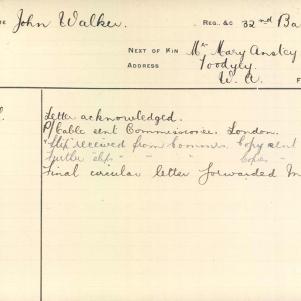 John Walker. REG. &C 32nd Ba
NEXT OF KIN Mrs Mary Ansley
ADDRESS Toodyay.
W. A.
Letter acknowledged.
P/Cable sent Commissioner London.
"Slip" received from Commrs. Copy sent
Further slip " " " Copies "
Final circular letter forwarded M